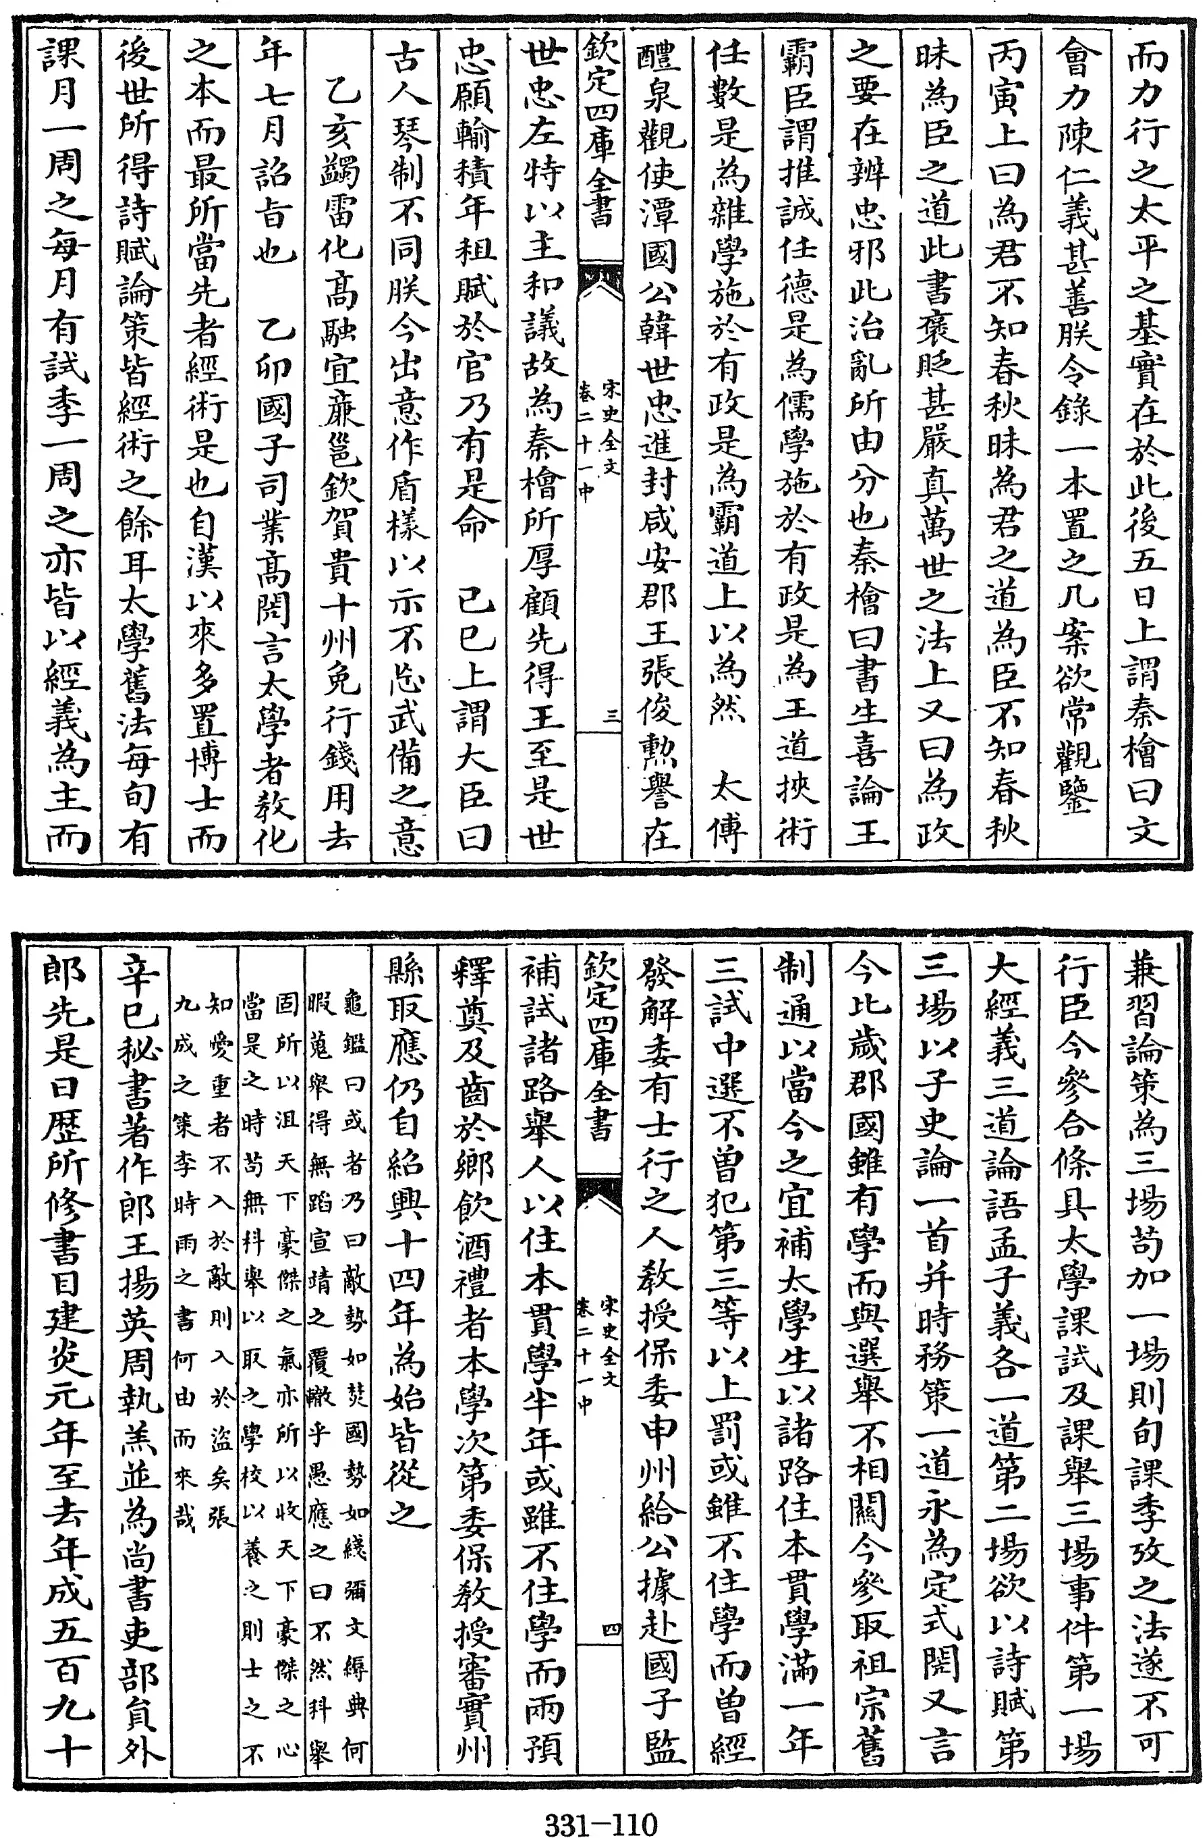 而力行之太平之基實在於此後五日上謂秦檜曰文
會力陳仁義甚善朕令錄一本置之几案欲常觀鑒
丙寅上曰為君不知春秋昧為君之道為臣不知春秋
昧為臣之道此書褒貶甚嚴真萬世之法上又曰為政
之要在辨忠邪此治亂所由分也秦檜曰書生喜論王
霸臣謂推誠任德是為儒學施於有政是為王道挾術
任數是為雜學施於有政是為霸道上以為然　太傅
醴泉觀使潭國公韓世忠進封咸安郡王張俊勲譽在
欽定四庫全書
宋史全文
卷二十一中
三
世忠左特以主和議故為秦檜所厚顧先得王至是世
忠願輸積年租賦於官乃有是命　己巳上謂大臣曰
古人琴制不同朕今出意作盾樣以示不忘武備之意
乙亥蠲雷化高融宜亷邕欽賀貴十州免行錢用去
年七月詔旨也　乙卯國子司業高閌言太學者教化
之本而最所當先者經術是也自漢以來多置博士而
後世所得詩賦論策皆經術之餘耳太學舊法每旬有
課月一周之每月有試季一周之亦皆以經義為主而
兼習論策為三場苟加一場則旬課季攷之法遂不可
行臣今參合條具太學課試及課舉三場事件第一場
大經義三道論語孟子義各一道第二場欲以詩賦第
三場以子史論一首并時務策一道永為定式閌又言
今比歲郡國雖有學而與選舉不相關今參取祖宗舊
制通以當今之宜補太學生以諸路住本貫學滿一年
三試中選不曽犯第三等以上罰或雖不住學而曽經
發解委有士行之人教授保委申州給公據赴國子監
欽定四庫全書
宋史全文
卷二十一中
四
補試諸路舉人以住本貫學半年或雖不住學而兩預
釋奠及齒於鄉飲酒禮者本學次第委保教授審實州
縣取應仍自紹興十四年為始皆從之
龜鑑曰或者乃曰敵勢如焚國勢如綫彌文縟典何
暇蒐舉得無蹈宣靖之覆轍乎愚應之曰不然科舉
固所以沮天下豪傑之氣亦所以收天下豪傑之心
當是之時苟無科舉以取之學校以養之則士之不
知愛重者不入於敵則入於盜矣張
九成之策李時雨之書何由而來哉
辛巳秘書著作郎王揚英周執羔並為尚書吏部員外
郎先是日歴所修書目建炎元年至去年成五百九十
331-110